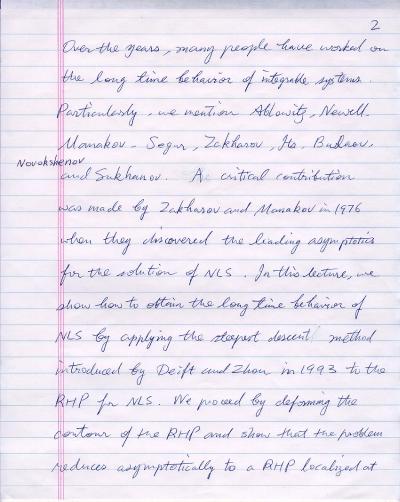 2
Over the years, many people have worked on
the long time behavior of integrable systems.
Particularly, we mention Ablowitz, Newell,
Manakov, Segur, Zakharov, Its, Budaev,
Novokshenov
and Sukhanov. A critical contribution
was made by Zakharov and Manakov in 1976
when they discovered the leading asymptotics
for the solution of NLS. In this lecture, we
show how to obtain the long time behavior of
NLS by applying the steepest descent method
introduced by Deift and Zhou in 1993 to the
RHP for NLS. We proceed by deforming the
contour of the RHP and show that the problem
reduces asymptotically to a RHP localized at